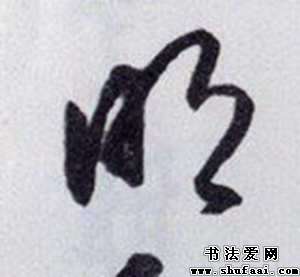 明
书法爱网
www.shufaai.com